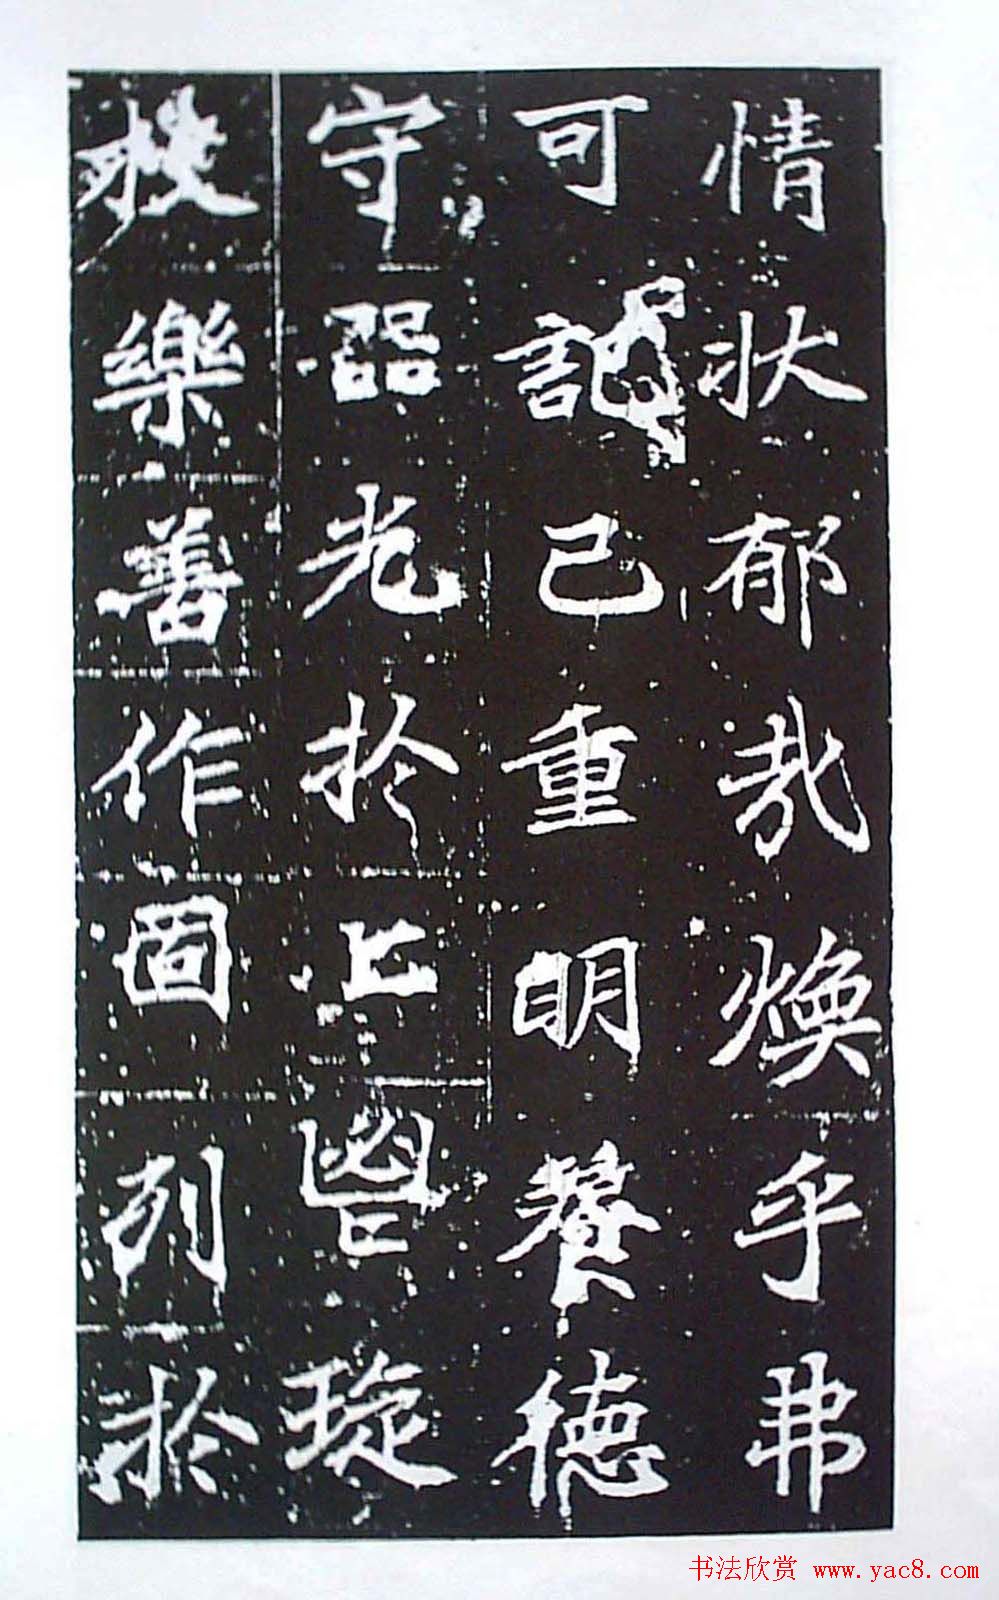 情狀郁哉煥乎弗
可記已重明養德
守器光於上嗣琁
枝樂善作固列於
书法欣赏 www.yac8.com